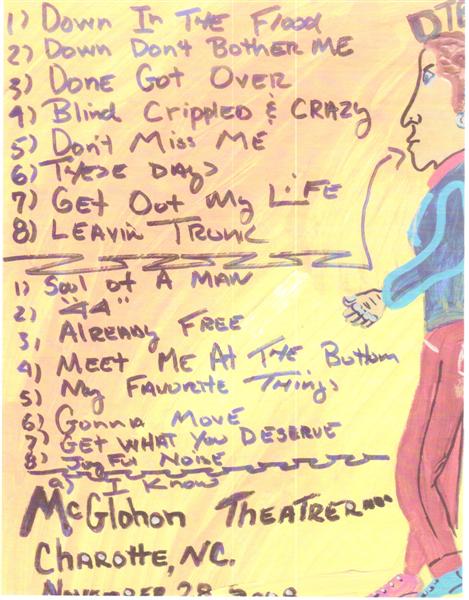 DTB
1) Down In The Flood
2) Down Don't Bother ME
3) Done Got Over
4) Blind Crippled & CRAZY
5) Don't Miss ME
6) These Days
7) Get Out My Life
8) LEAVIN TRUNK
1) Soul of A MAN
2) "44"
3) Already FREE
4) MEET ME At The Bottom
5) My FAVORITE Things
6) Gonna MOVE
7) GET WHAT YOU DESERVE
8) Joyful Noise
a) I Know
McGlohon Theatrer
Charotte, NC.
November 28 2008